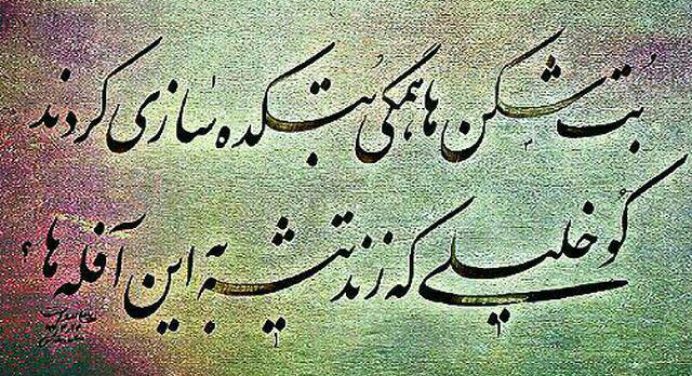 بُت شکن ها، همگی بُتکده سٰازی کردند
کوُ خلیلی که زند تیشه به این آفله ها ؟